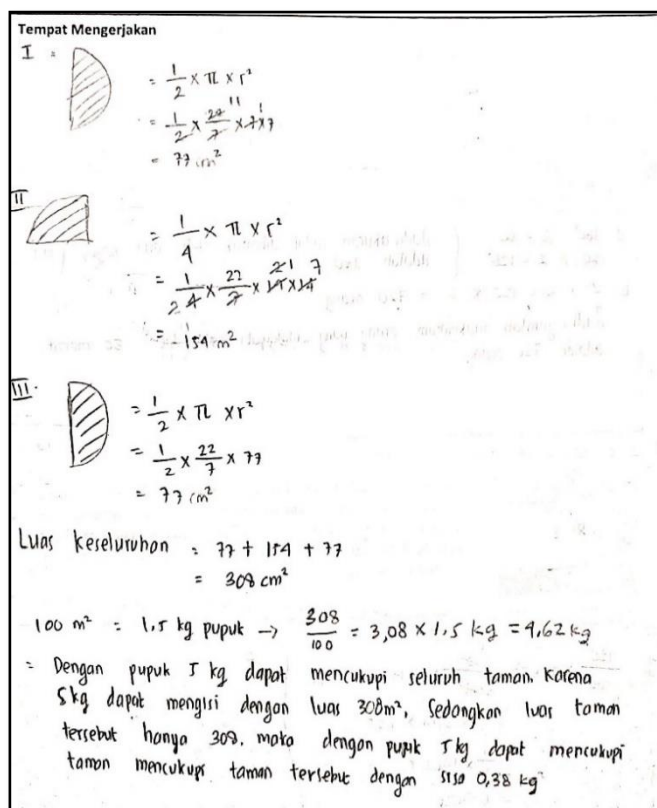 Tempat Mengerjakan
I =
= 1/2 × π × r²
= 1/2 × 22/7 11 × 7 1 × 7
= 77 cm²
II
= 1/4 × π × r²
= 1/4 2 × 22/7 × 14 2 1 × 14 7
= 154 m²
III.
= 1/2 × π × r²
= 1/2 × 22/7 × 77
= 77 cm²
Luas keseluruhan = 77 + 154 + 77
= 308 cm²
100 m² = 1,5 kg pupuk → 308/100 = 3,08 × 1,5 kg = 4,62 kg
= Dengan pupuk 5 kg dapat mencukupi seluruh taman. Karena
5kg dapat mengisi dengan luas 308m², Sedangkan luas taman
tersebut hanya 308. maka dengan pupuk 5 kg dapat mencukupi
taman mencukupi taman tersebut dengan sisa 0,38 kg